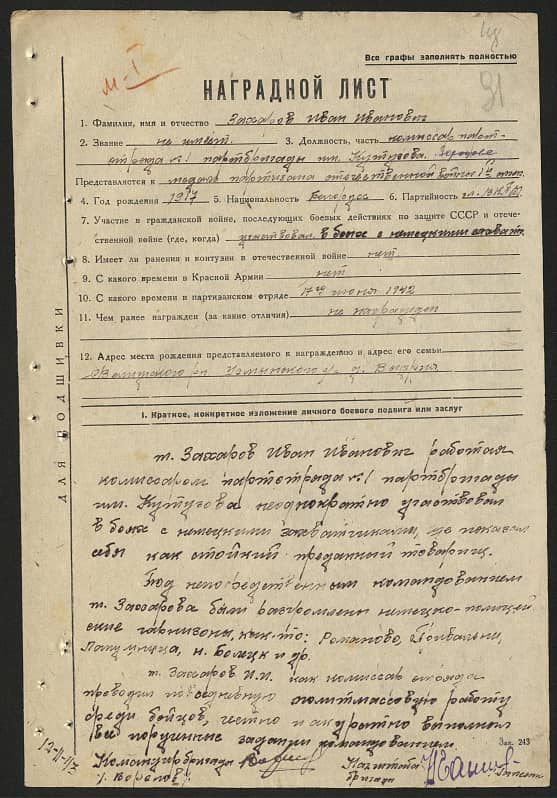 Все графы заполнять полностью
91
М-I
НАГРАДНОЙ ЛИСТ
1. Фамилия, имя и отчество Захаров Иван Иванович
2. Звание не имеет. 3. Должность, часть комиссар парт-
отряда №1 партбригады им. Кутузова.
Представляется к медали партизана отечественной войны 1й степ.
4. Год рождения 1917 5. Национальность Белорус 6. Партийность
7. Участие в гражданской войне, последующих боевых действиях по защите СССР и отече-
ственной войне (где, когда) участвовал в боях с немецкими
8. Имеет ли ранения и контузии в отечественной войне нет
9. С какого времени в Красной Армии нет
10. С какого времени в партизанском отряде 17го июня 1942
11. Чем ранее награжден (за какие отличия) не награжден
12. Адрес места рождения представляемого к награждению и адрес его семьи
ДЛЯ ПОДШИВКИ
I. Краткое, конкретное изложение личного боевого подвига или заслуг
т. Захаров Иван Иванович работая
комиссаром партотряда №1 партбригады
им. Кутузова неоднократно участвовал
в боях с немецкими захватчиками, где показал
себя как стойкий преданный товарищ.
Под непосредственным командованием
т. Захарова были разгромлены немецко-полицей
ские гарнизоны, как-то: Романово,
и др.
т. Захаров И.И. как комиссар отряда
проводил повседневную политмассовую работу
среди бойцов, честно и аккуратно выполнял
все порученные задания командованием.
Зак. 243
Командир бригады
Нач. штаба
бригады